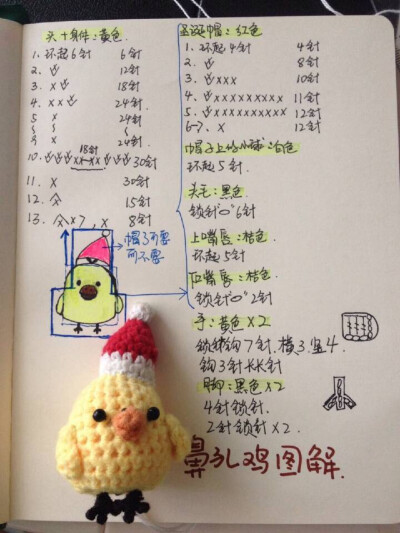 头+身体:黄色
1、环起6针 6针
2、V 12针
3、XV 18针
4、XXV 24针
5 X 24针
24针
18针
10、VVVXX~XXVVV 30针
11、X 30针
12、A 15针
13、AX7,X 8针
帽子可要
可不要
圣诞帽:红色
1、环起4针 4针
2、V 8针
3、VXXX 10针
4、VXXXXXXXXX 11针
5、VXXXXXXXXXX 12针
6→7、X 12针
帽子上的小球:白色
环起5针
头毛:黑色
锁针"0"6针
上嘴唇:桔色
环起5针
下嘴唇:桔色
锁针"0"2针
手:黄色X2
锁针钩7针.横3.竖4.
钩3针长长针
脚:黑色X2
4针锁针.
2针锁针X2.
鼻孔鸡图解.